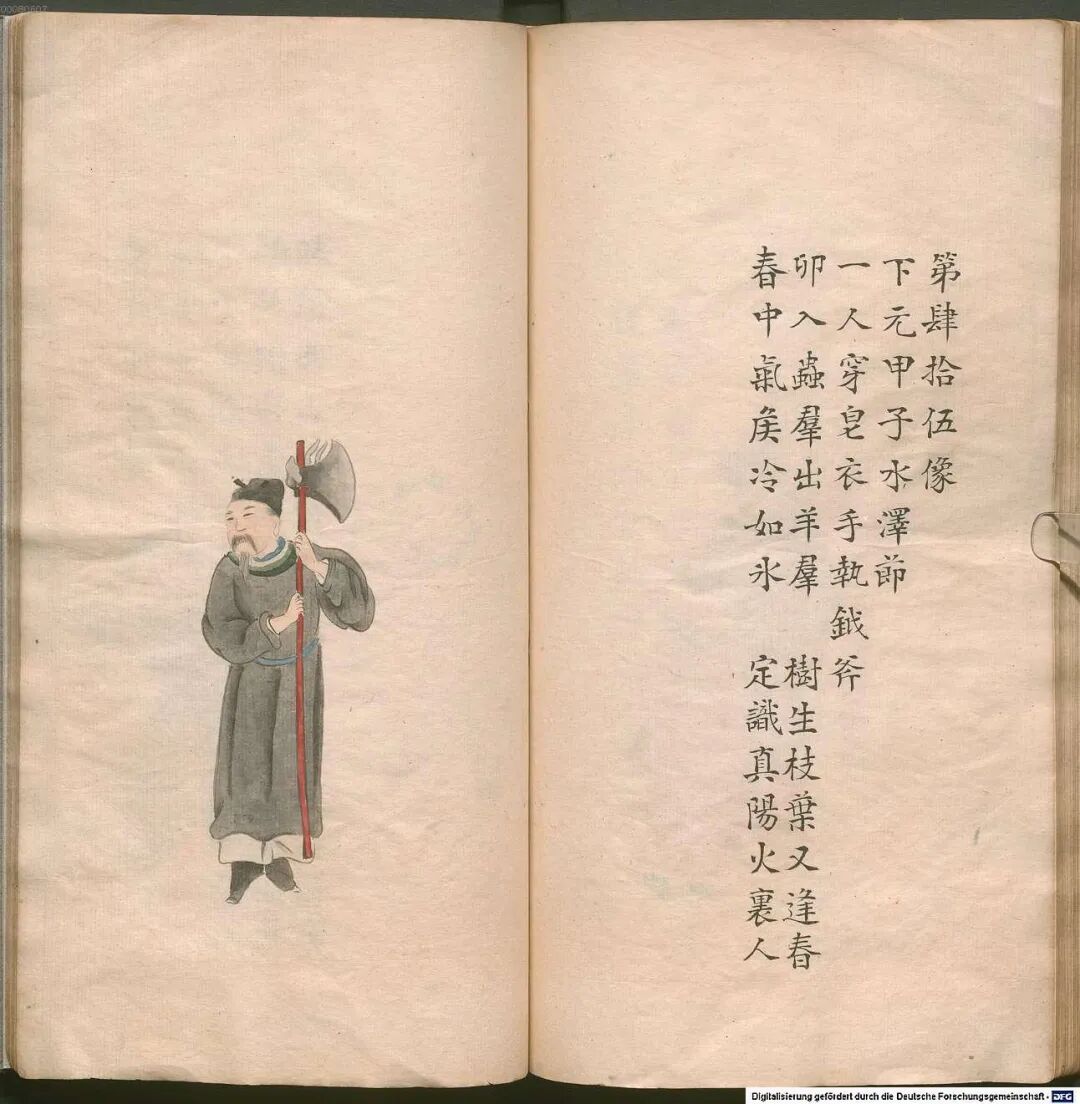 第肆拾伍像
下元甲子水澤節
一人穿皂衣手執鉞斧
卯入蟲羣出羊羣　樹生枝葉又逢春
春中氣矦冷如氷　定識真陽火裏人
00080607
Digitalisierung gefördert durch die Deutsche Forschungsgemeinschaft - DFG